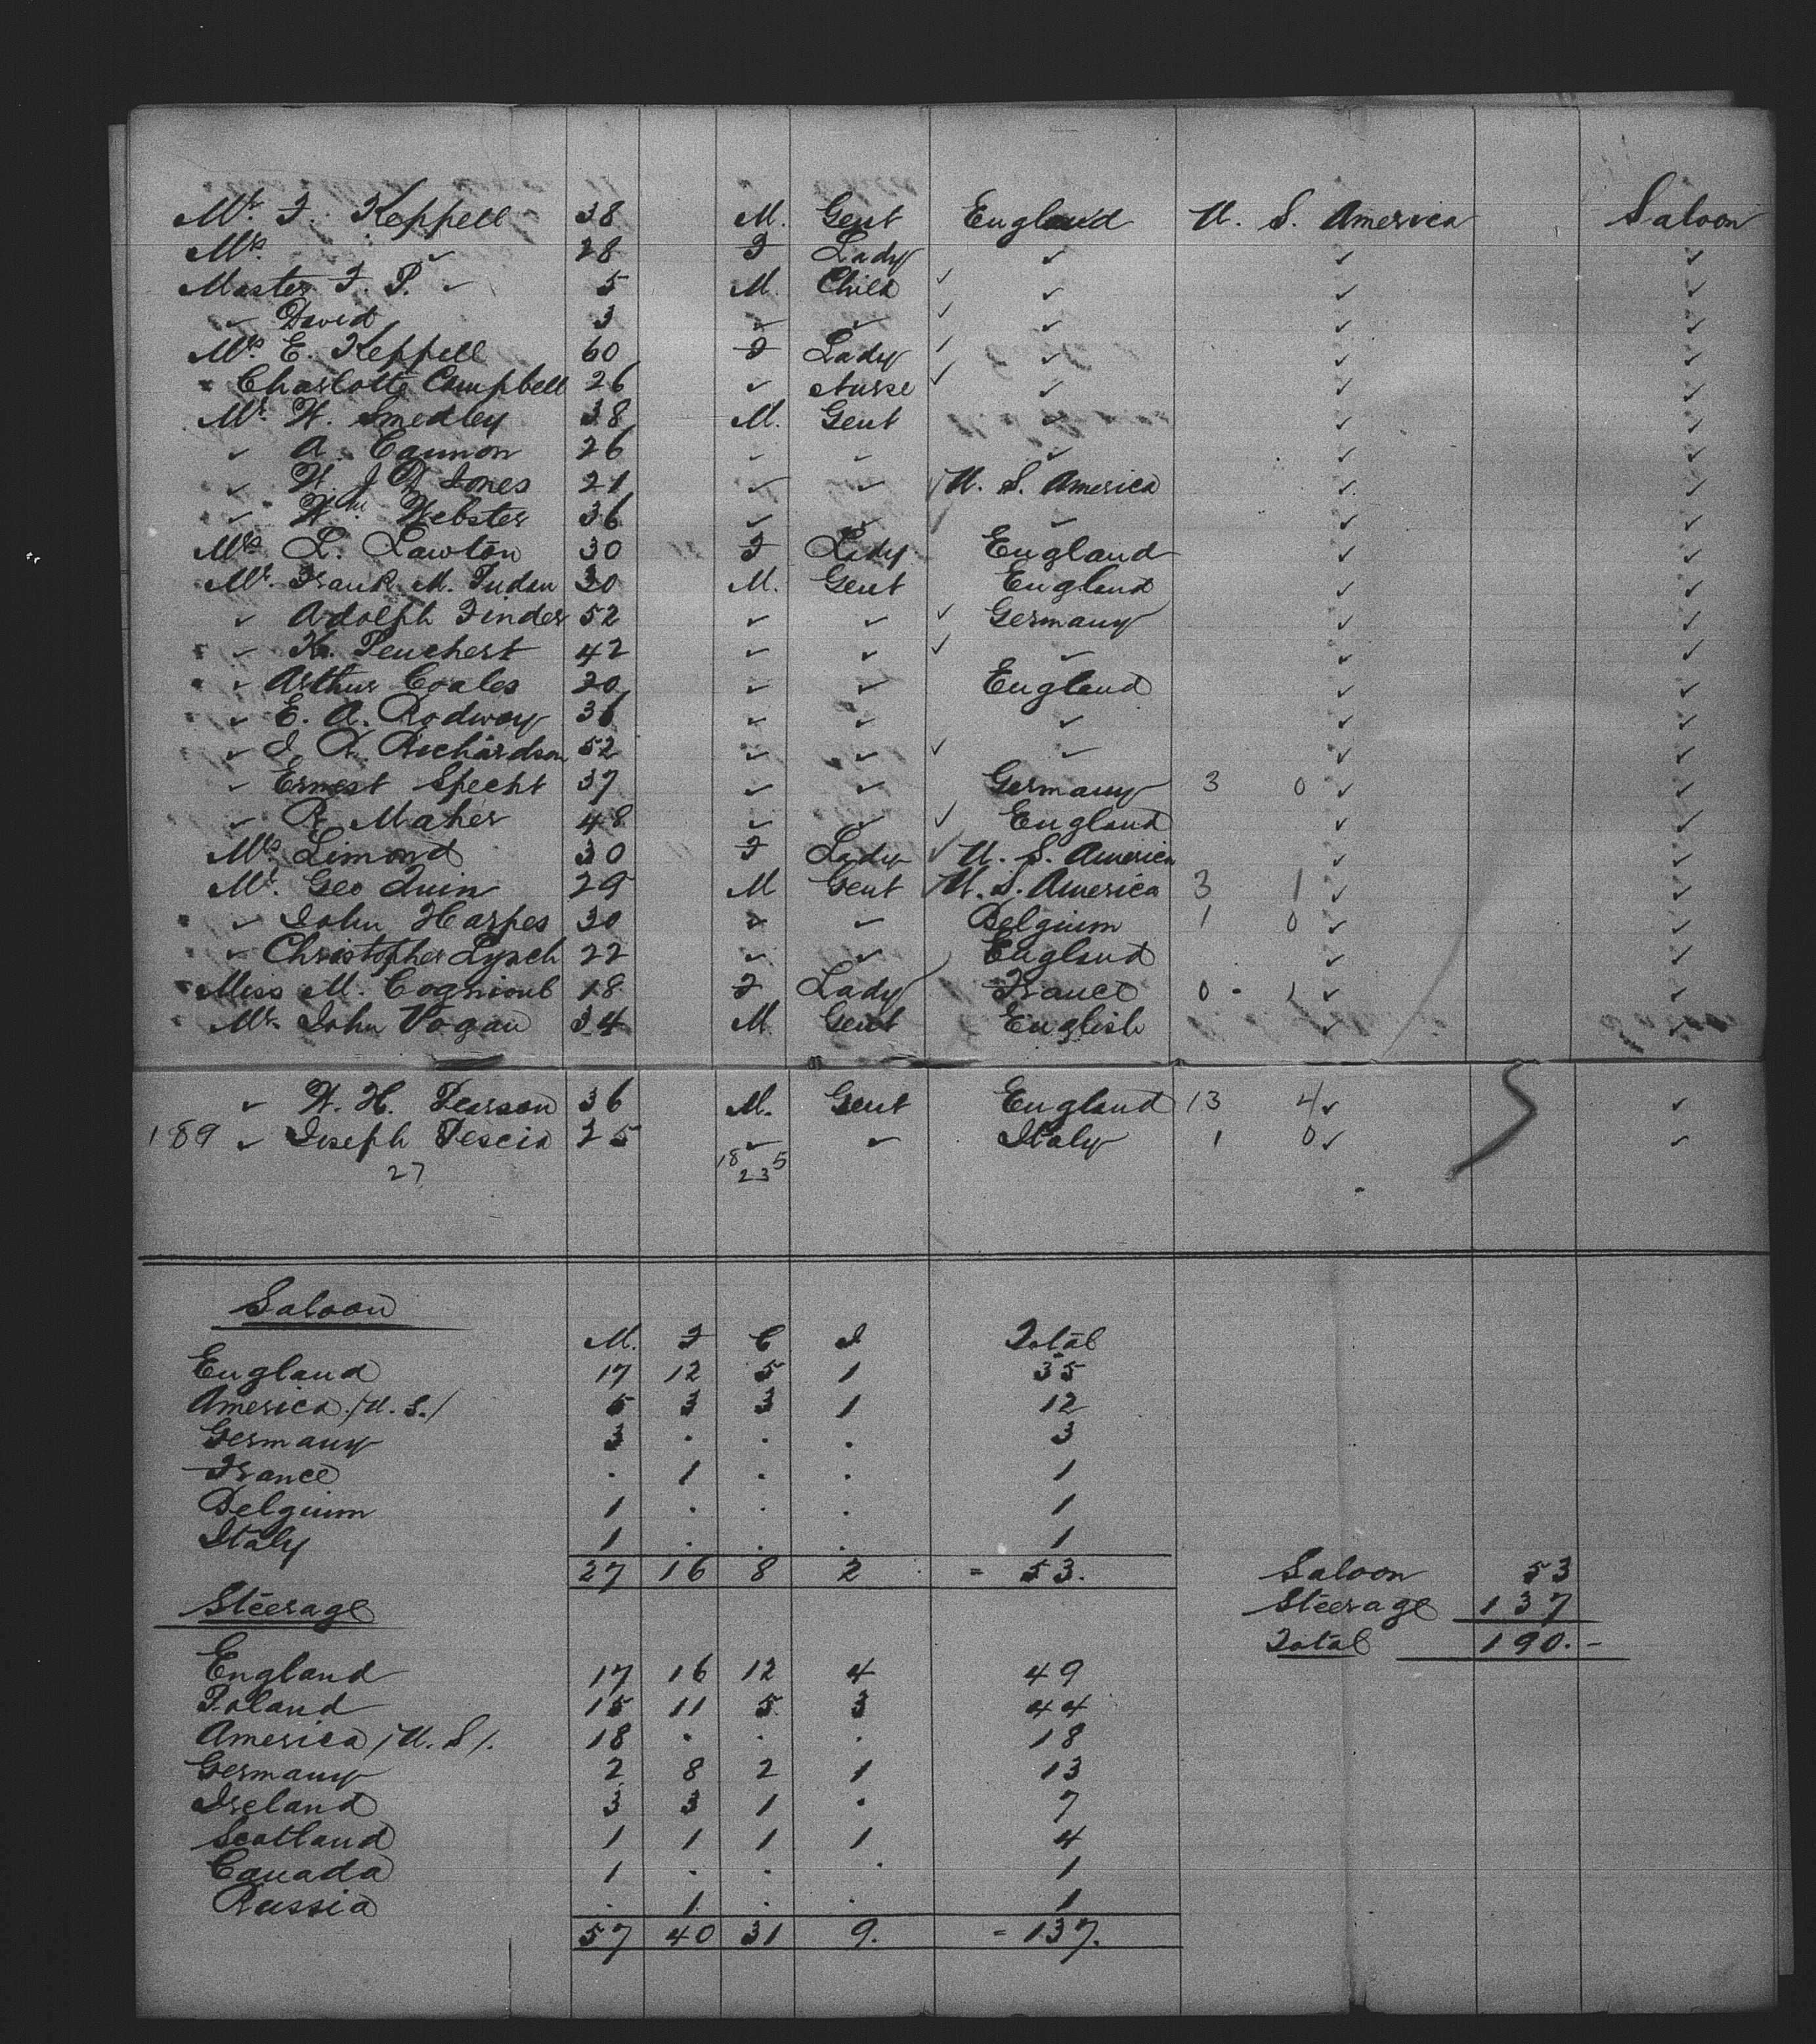 Mr. F. Keppell 38 M. Gent England U. S. America Saloon
Mrs. ✓ 28 F Lady ✓ ✓ ✓
Master F. P. ✓ 5 M. Child ✓ ✓ ✓ ✓
✓ David 3 ✓ ✓ ✓ ✓ ✓ ✓
Mrs. E. Keppell 60 F Lady ✓ ✓ ✓ ✓
Charlotte Campbell 26 ✓ Nurse ✓ ✓ ✓ ✓
Mr. W. Smedley 38 M. Gent ✓ ✓ ✓
✓ A. Cannon 26 ✓ ✓ ✓ ✓ ✓
✓ W. J. D Jones 21 ✓ ✓ ✓ U. S. America ✓ ✓
✓ Wm. Webster 36 ✓ ✓ ✓ ✓ ✓
Mrs. L. Lawton 30 F Lady England ✓ ✓
Mr. Frank M. 30 M. Gent England ✓ ✓
✓ Adolph Finder 52 ✓ ✓ ✓ Germany ✓ ✓
✓ K. Peuchert 42 ✓ ✓ ✓ ✓ ✓ ✓
✓ Arthur Coales 20 ✓ ✓ England ✓ ✓
✓ E. A. Rodway 36 ✓ ✓ ✓ ✓ ✓
✓ J. R. Richardson 52 ✓ ✓ ✓ ✓ ✓ ✓
✓ Ernest Specht 37 ✓ ✓ Germany 3 0 ✓ ✓
✓ R. Maher 48 ✓ ✓ ✓ England ✓ ✓
Mrs. Limond 30 F Lady ✓ U. S. America ✓ ✓
Mr. Geo Quin 29 M Gent ✓ U. S. America 3 1 ✓ ✓
✓ John Harpes 30 ✓ ✓ Belgium 1 0 ✓ ✓
✓ Christopher Lynch 22 ✓ ✓ England ✓ ✓
Miss M. 18 F Lady France 0 - 1 ✓ ✓
Mr. John Vogan 34 M Gent English ✓ ✓
✓ W. H. Pearson 36 M. Gent England 13 4 ✓ ✓
189 ✓ Joseph Pescia 25 ✓ ✓ Italy 1 0 ✓ ✓
27 18 5
23
Saloon
M. F C I Total
England 17 12 5 1 35
America /U. S./ 5 3 3 1 12
Germany 3 . . . 3
France . 1 . . 1
Belgium 1 . . . 1
Italy 1 . . . 1
27 16 8 2 = 53.
Saloon 53
Steerage 137
Total 190.-
Steerage
England 17 16 12 4 49
Poland 15 11 5 3 44
America /U. S/. 18 . . . 18
Germany 2 8 2 1 13
Ireland 3 3 1 . 7
Scotland 1 1 1 1 4
Canada 1 . . . 1
Russia . 1 . . 1
57 40 31 9. = 137.